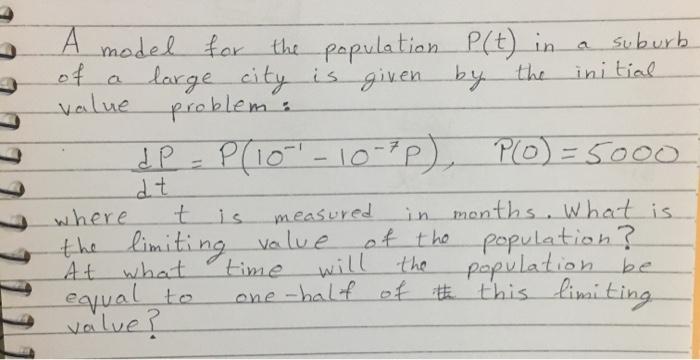 A model for the population P(t) in a suburb
of a large city is given by the initial
value problem:
dP/dt = P(10⁻¹ - 10⁻⁷P), P(0) = 5000
where t is measured in months. What is
the limiting value of the population?
At what time will the population be
equal to one-half of this limiting
value?